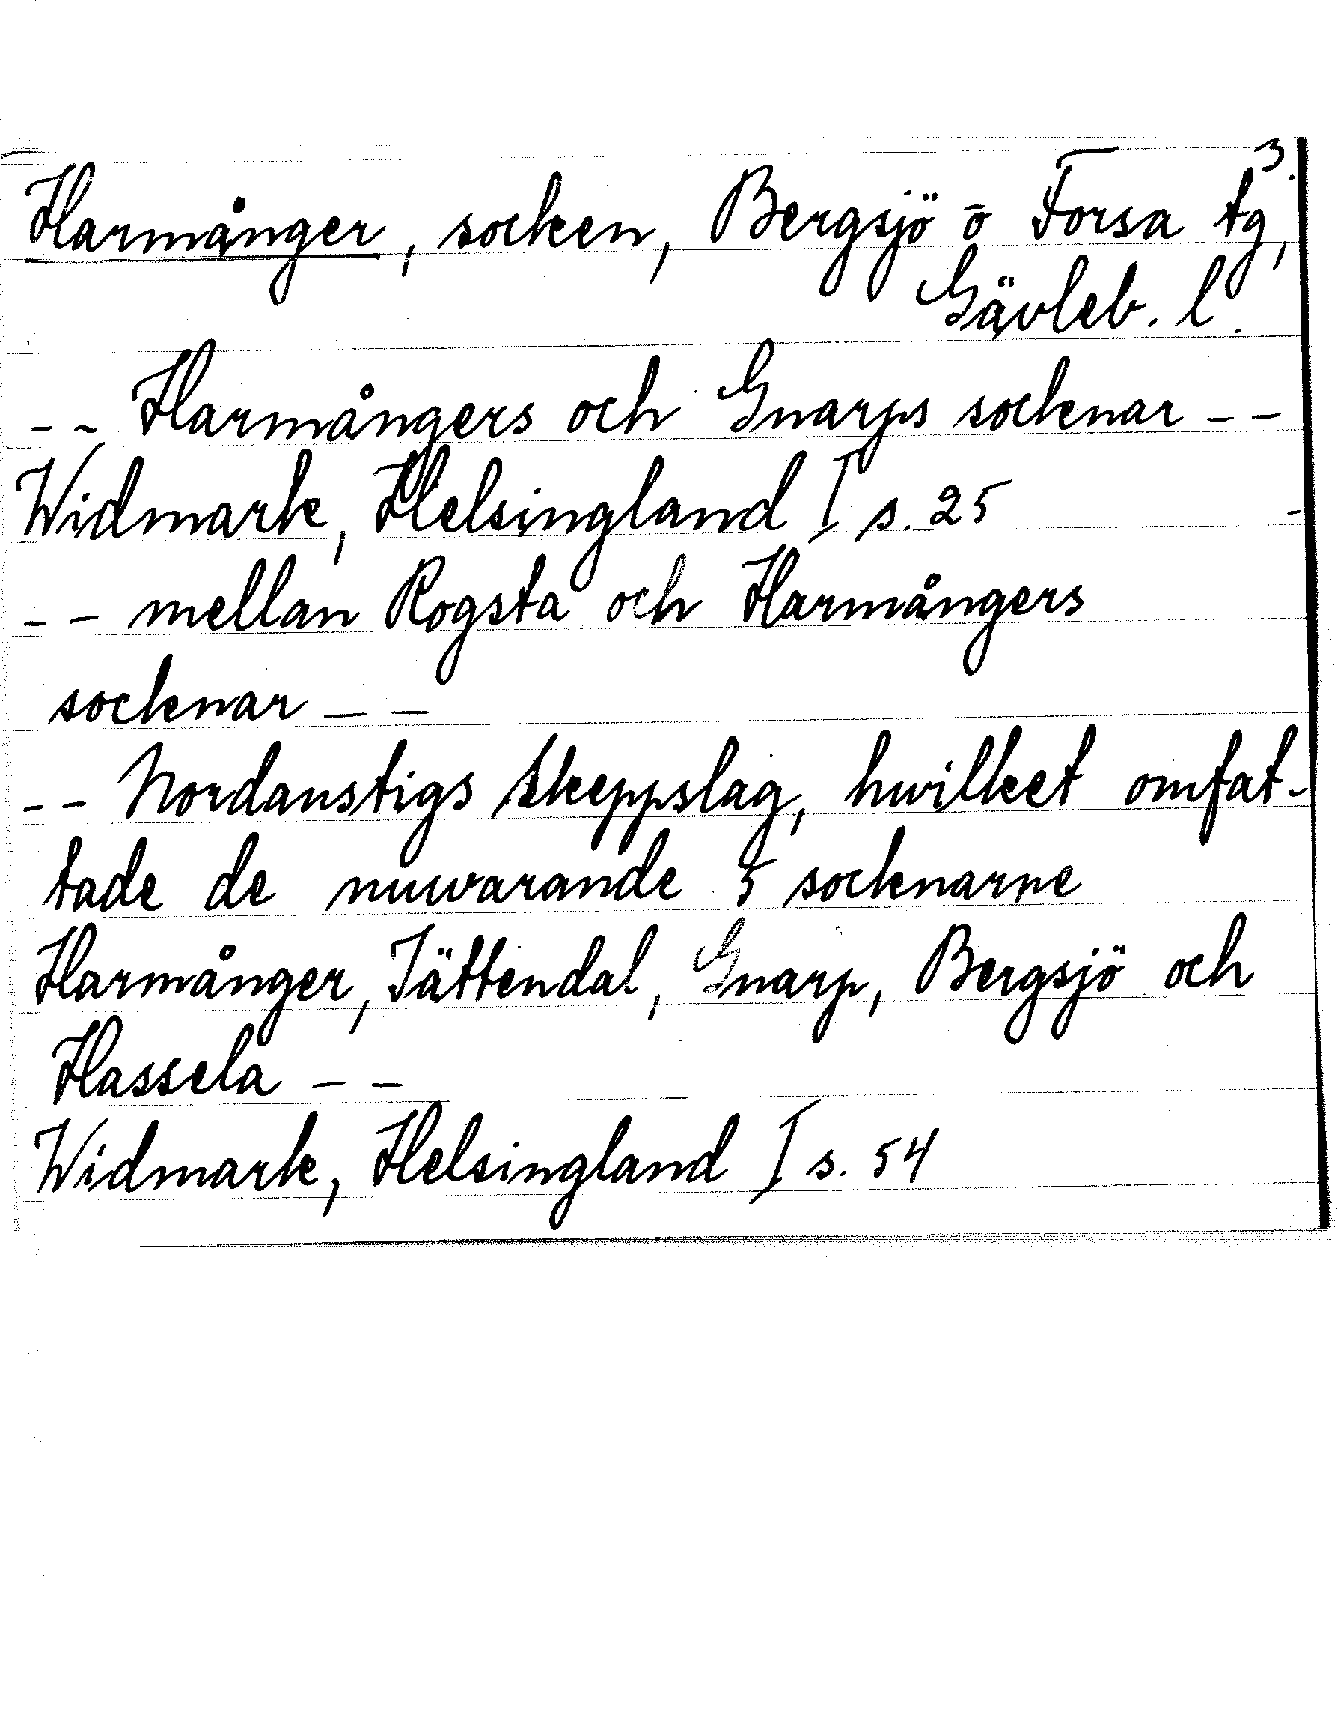 3.
Harmånger, socken, Bergsjö o Forsa tg,
Gävleb. l.
-- Harmångers och Gnarps socknar --
Widmark, Helsingland I s. 25
-- mellan Rogsta och Harmångers
socknar --
-- Nordanstigs Skeppslag, hwilket omfat-
tade de nuwarande 5 socknarne
Harmånger, Jättendal, Gnarp, Bergsjö och
Hassela --
Widmark, Helsingland I s. 54